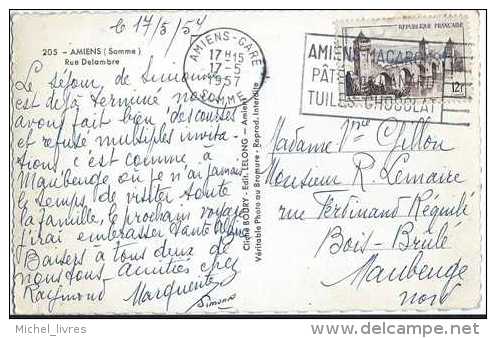 le 17/5/57
205 - AMIENS (Somme)
Rue Delambre
AMIENS-GARE
17H15
17-5
1957
SOMME
REPUBLIQUE FRANÇAISE
12F
AMIENS MACARONS
PÂTES
TUILES CHOCOLAT
Le séjour de Simone
est déjà terminé nous
avons fait bien des courses
et refusé multiples invita
tions c'est comme à
Maubenge ou je n'ai jamais
le temps de visiter toute
la famille, le prochain voyage
j'irai embrasser tante
Baisers à tous deux de
nous tous amitiés chez
Raymond Marguerite
Simone
Cliché BOURY - Edit. LELONG - Amiens
Véritable Photo au Bromure - Reprod. Interdite
Madame Vve Chillon
Monsieur R. Lemaire
rue Ferdinand Régulé
Bois-Brulé
Maubenge
Nord
Michel_livres
http://www.delcampe.net